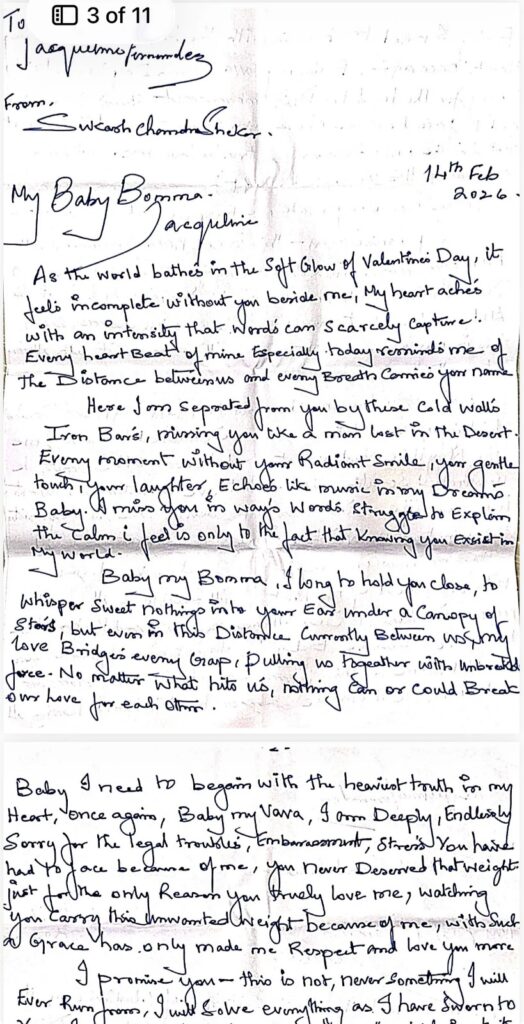 3 of 11
To
Jacqueline Fernandez
From.
Sukash ChandraShekar.
14th Feb
2026.
My Baby Bomma.
Jacqueline
As the world bathes in the Soft Glow of Valentine's Day, it
feels incomplete without you beside me, My heart aches
with an intensity that words can scarcely capture.
Every heartBeat of mine Especially today reminds me of
the Distance between us and every Breath Carries your name
Here I am Seprated from you by these Cold walls
Iron Bars, missing you like a man lost in the Desert.
Every moment without your Radiant Smile, your gentle
touch, your laughter, Echoes like music in my Dreams
Baby. I miss you in ways Words Struggle to Explain
the Calm i feel is only to the fact that Knowing you Exsist in
My world.
Baby my Bomma, I long to hold you close, to
whisper Sweet nothings into your Ear under a Canopy of
Stars, but even in this Distance Currently Between us, my
love Bridges every Gap, Pulling us together with
force. No matter what hits us, nothing Can or Could Break
our love for each other.
- 2 -
Baby I need to begain with the heaviest truth in my
Heart, once again, Baby my Vava, I am Deeply, Endlessly
Sorry for the legal troubles, Embarassment, Stress You have
had to face because of me, you never Deserved that weight
just for the only Reason you truely love me, watching
you Carry this Unwanted weight because of me, with Such
a Grace has only made me Respect and love you more
I promise you - this is not, never Something I will
Ever Run from, I will Solve everything as I have Sworn to